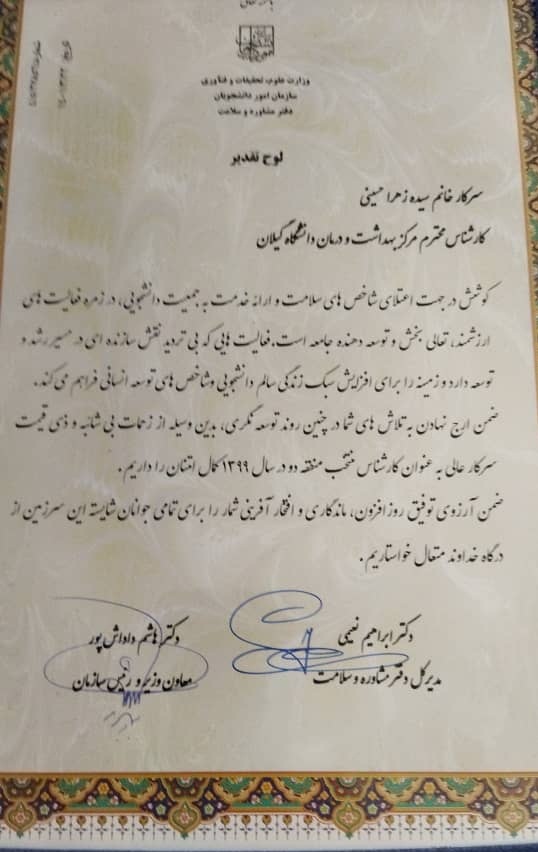 باسمه تعالی
وزارت علوم، تحقیقات و فناوری
سازمان امور دانشجویان
دفتر مشاوره و سلامت
لوح تقدیر
سرکار خانم سیده زهرا حسینی
کارشناس محترم مرکز بهداشت و درمان دانشگاه گیلان
کوشش در جهت اعتلای شاخص های سلامت و ارائه خدمت به جمعیت دانشجویی، در زمره فعالیت های
ارزشمند، تعالی بخش و توسعه دهنده جامعه است. فعالیت هایی که بی تردید نقش سازنده ای در مسیر رشد و
توسعه دارد و زمینه را برای افزایش سبک زندگی سالم دانشجویی و شاخص های توسعه انسانی فراهم می کند.
ضمن ارج نهادن به تلاش های شما در چنین روند توسعه نگری، بدین وسیله از زحمات بی شائبه و ذی قیمت
سرکار عالی به عنوان کارشناس منتخب منطقه دو در سال ۱۳۹۹ کمال امتنان را داریم.
ضمن آرزوی توفیق روز افزون، ماندگاری و افتخار آفرینی شما را برای تمامی جوانان شایسته این سرزمین از
درگاه خداوند متعال خواستاریم.
دکتر ابراهیم نعیمی
مدیر کل دفتر مشاوره و سلامت
دکتر هاشم داداش پور
معاون وزیر و رئیس سازمان